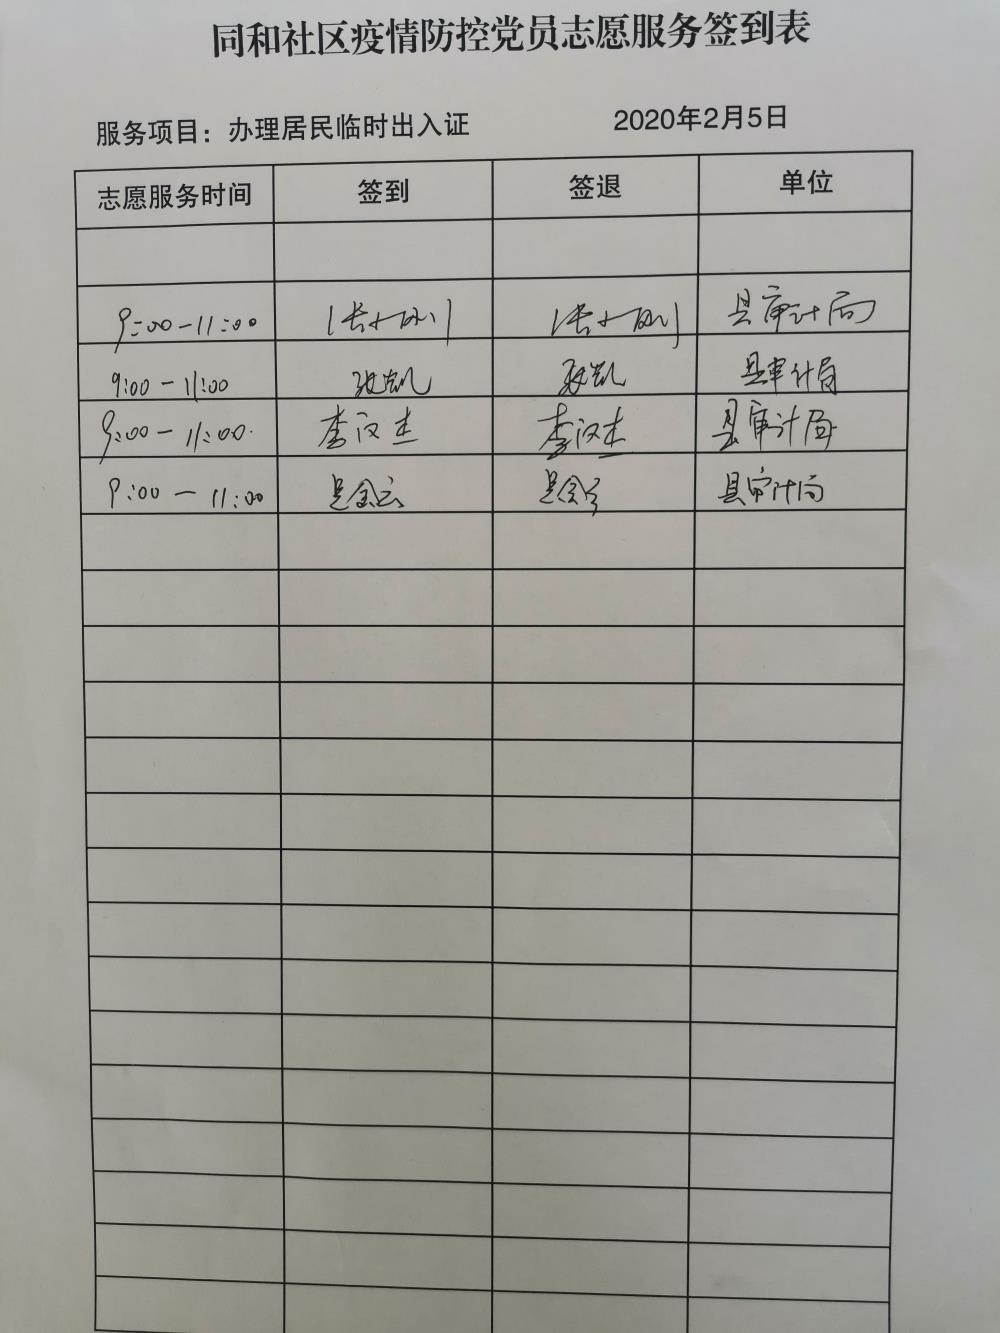 同和社区疫情防控党员志愿服务签到表
服务项目：办理居民临时出入证 2020年2月5日
志愿服务时间 签到 签退 单位
9:00-11:00 县审计局
9:00-11:00 张凯 张凯 县审计局
9:00-11:00. 李汉杰 李汉杰 县审计局
9:00-11:00 县审计局